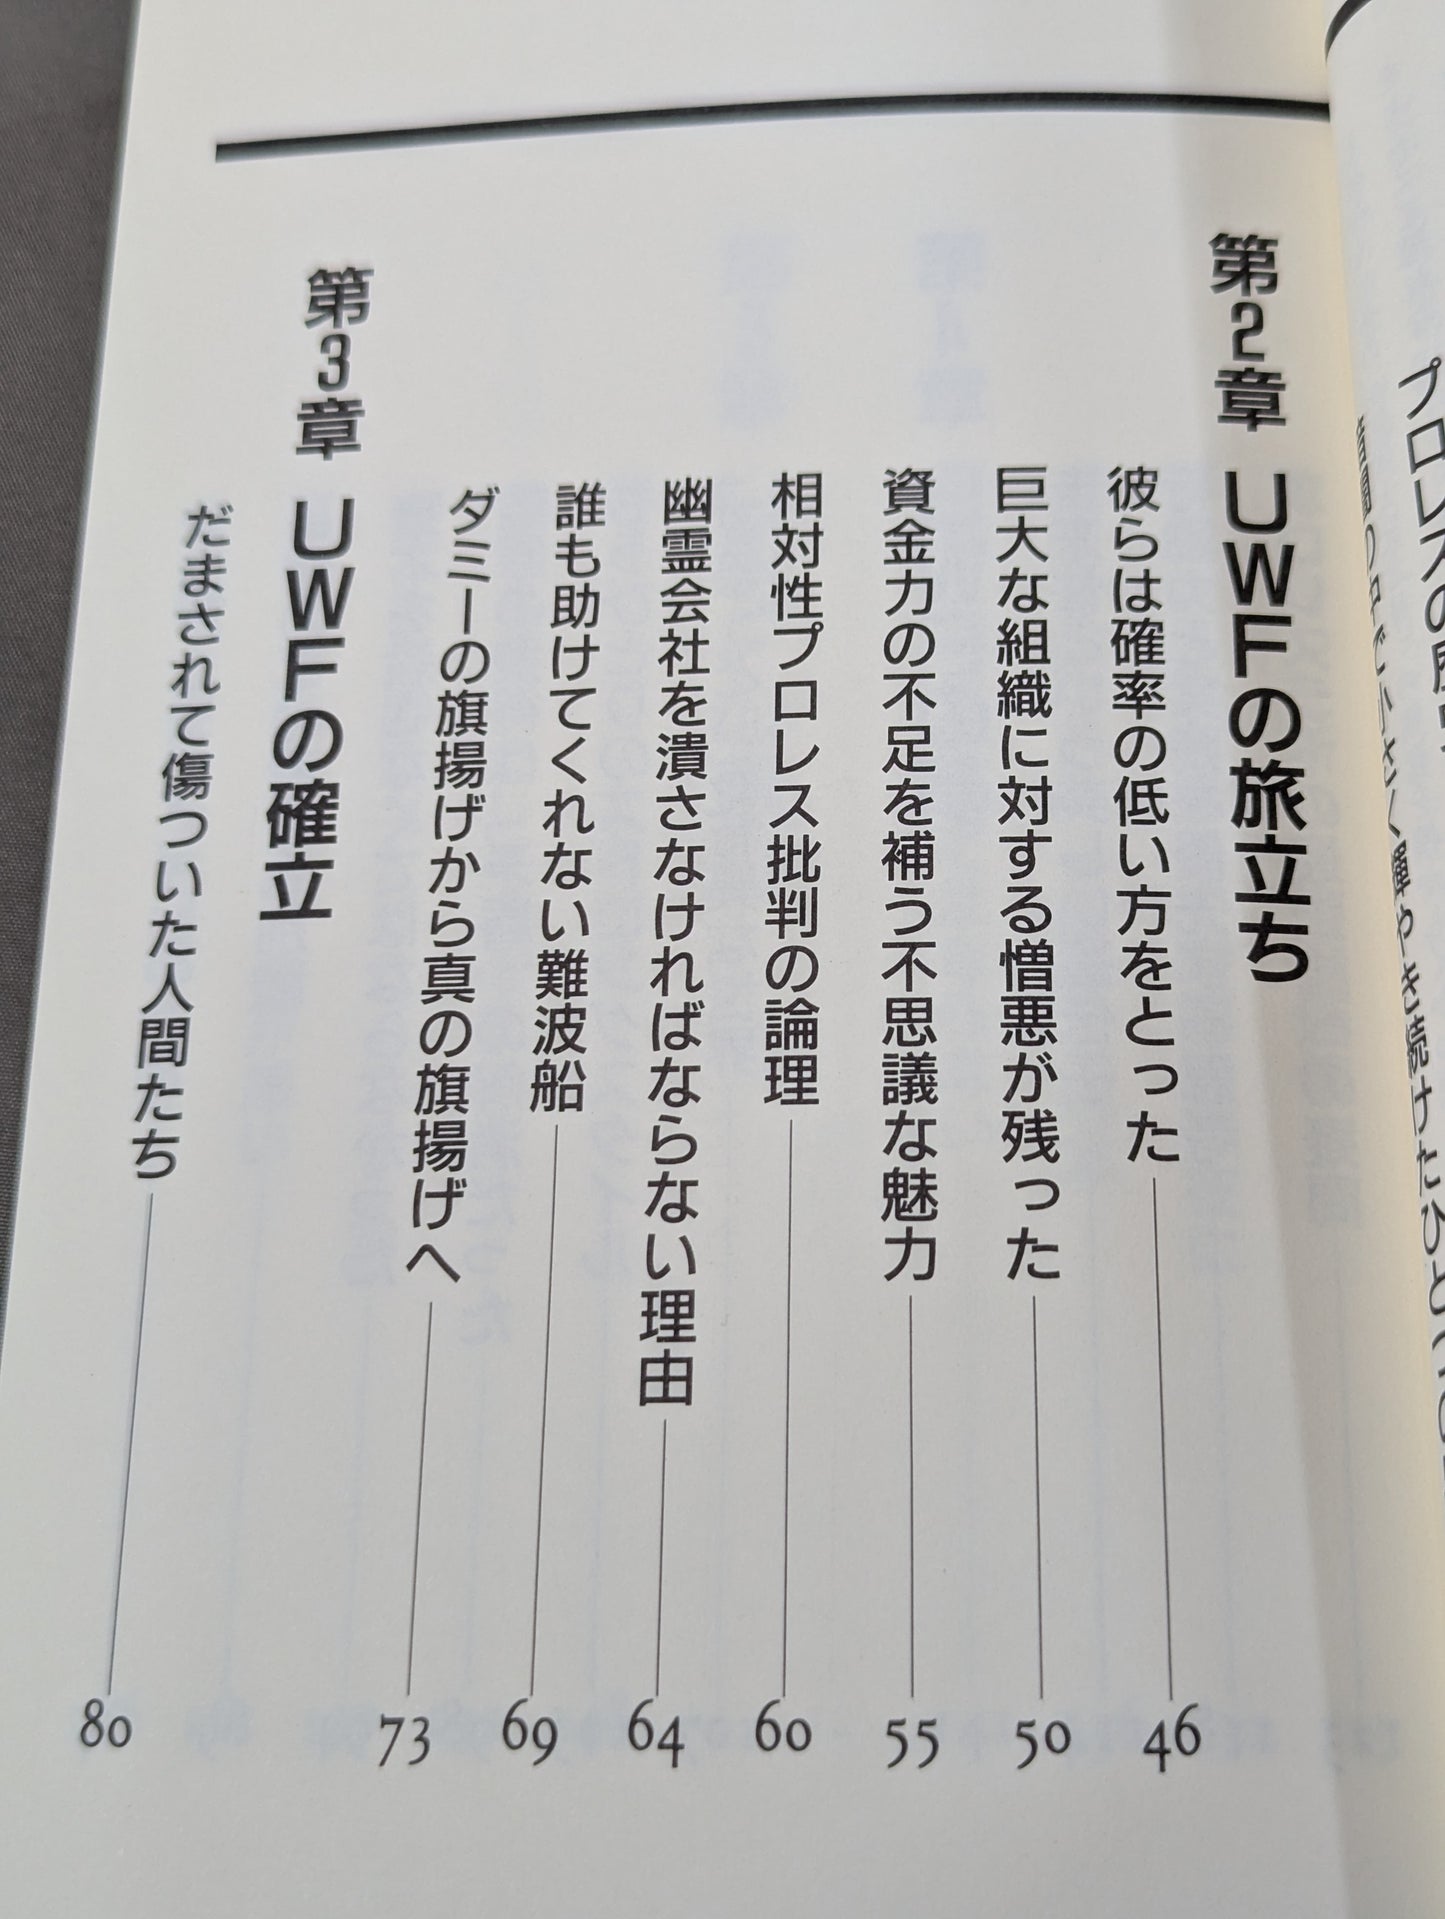 第2章 UWFの旅立ち
彼らは確率の低い方をとった 46
巨大な組織に対する憎悪が残った 50
資金力の不足を補う不思議な魅力 55
相対性プロレス批判の論理 60
幽霊会社を潰さなければならない理由 64
誰も助けてくれない難波船 69
ダミーの旗揚げから真の旗揚げへ 73
第3章 UWFの確立
だまされて傷ついた人間たち 80